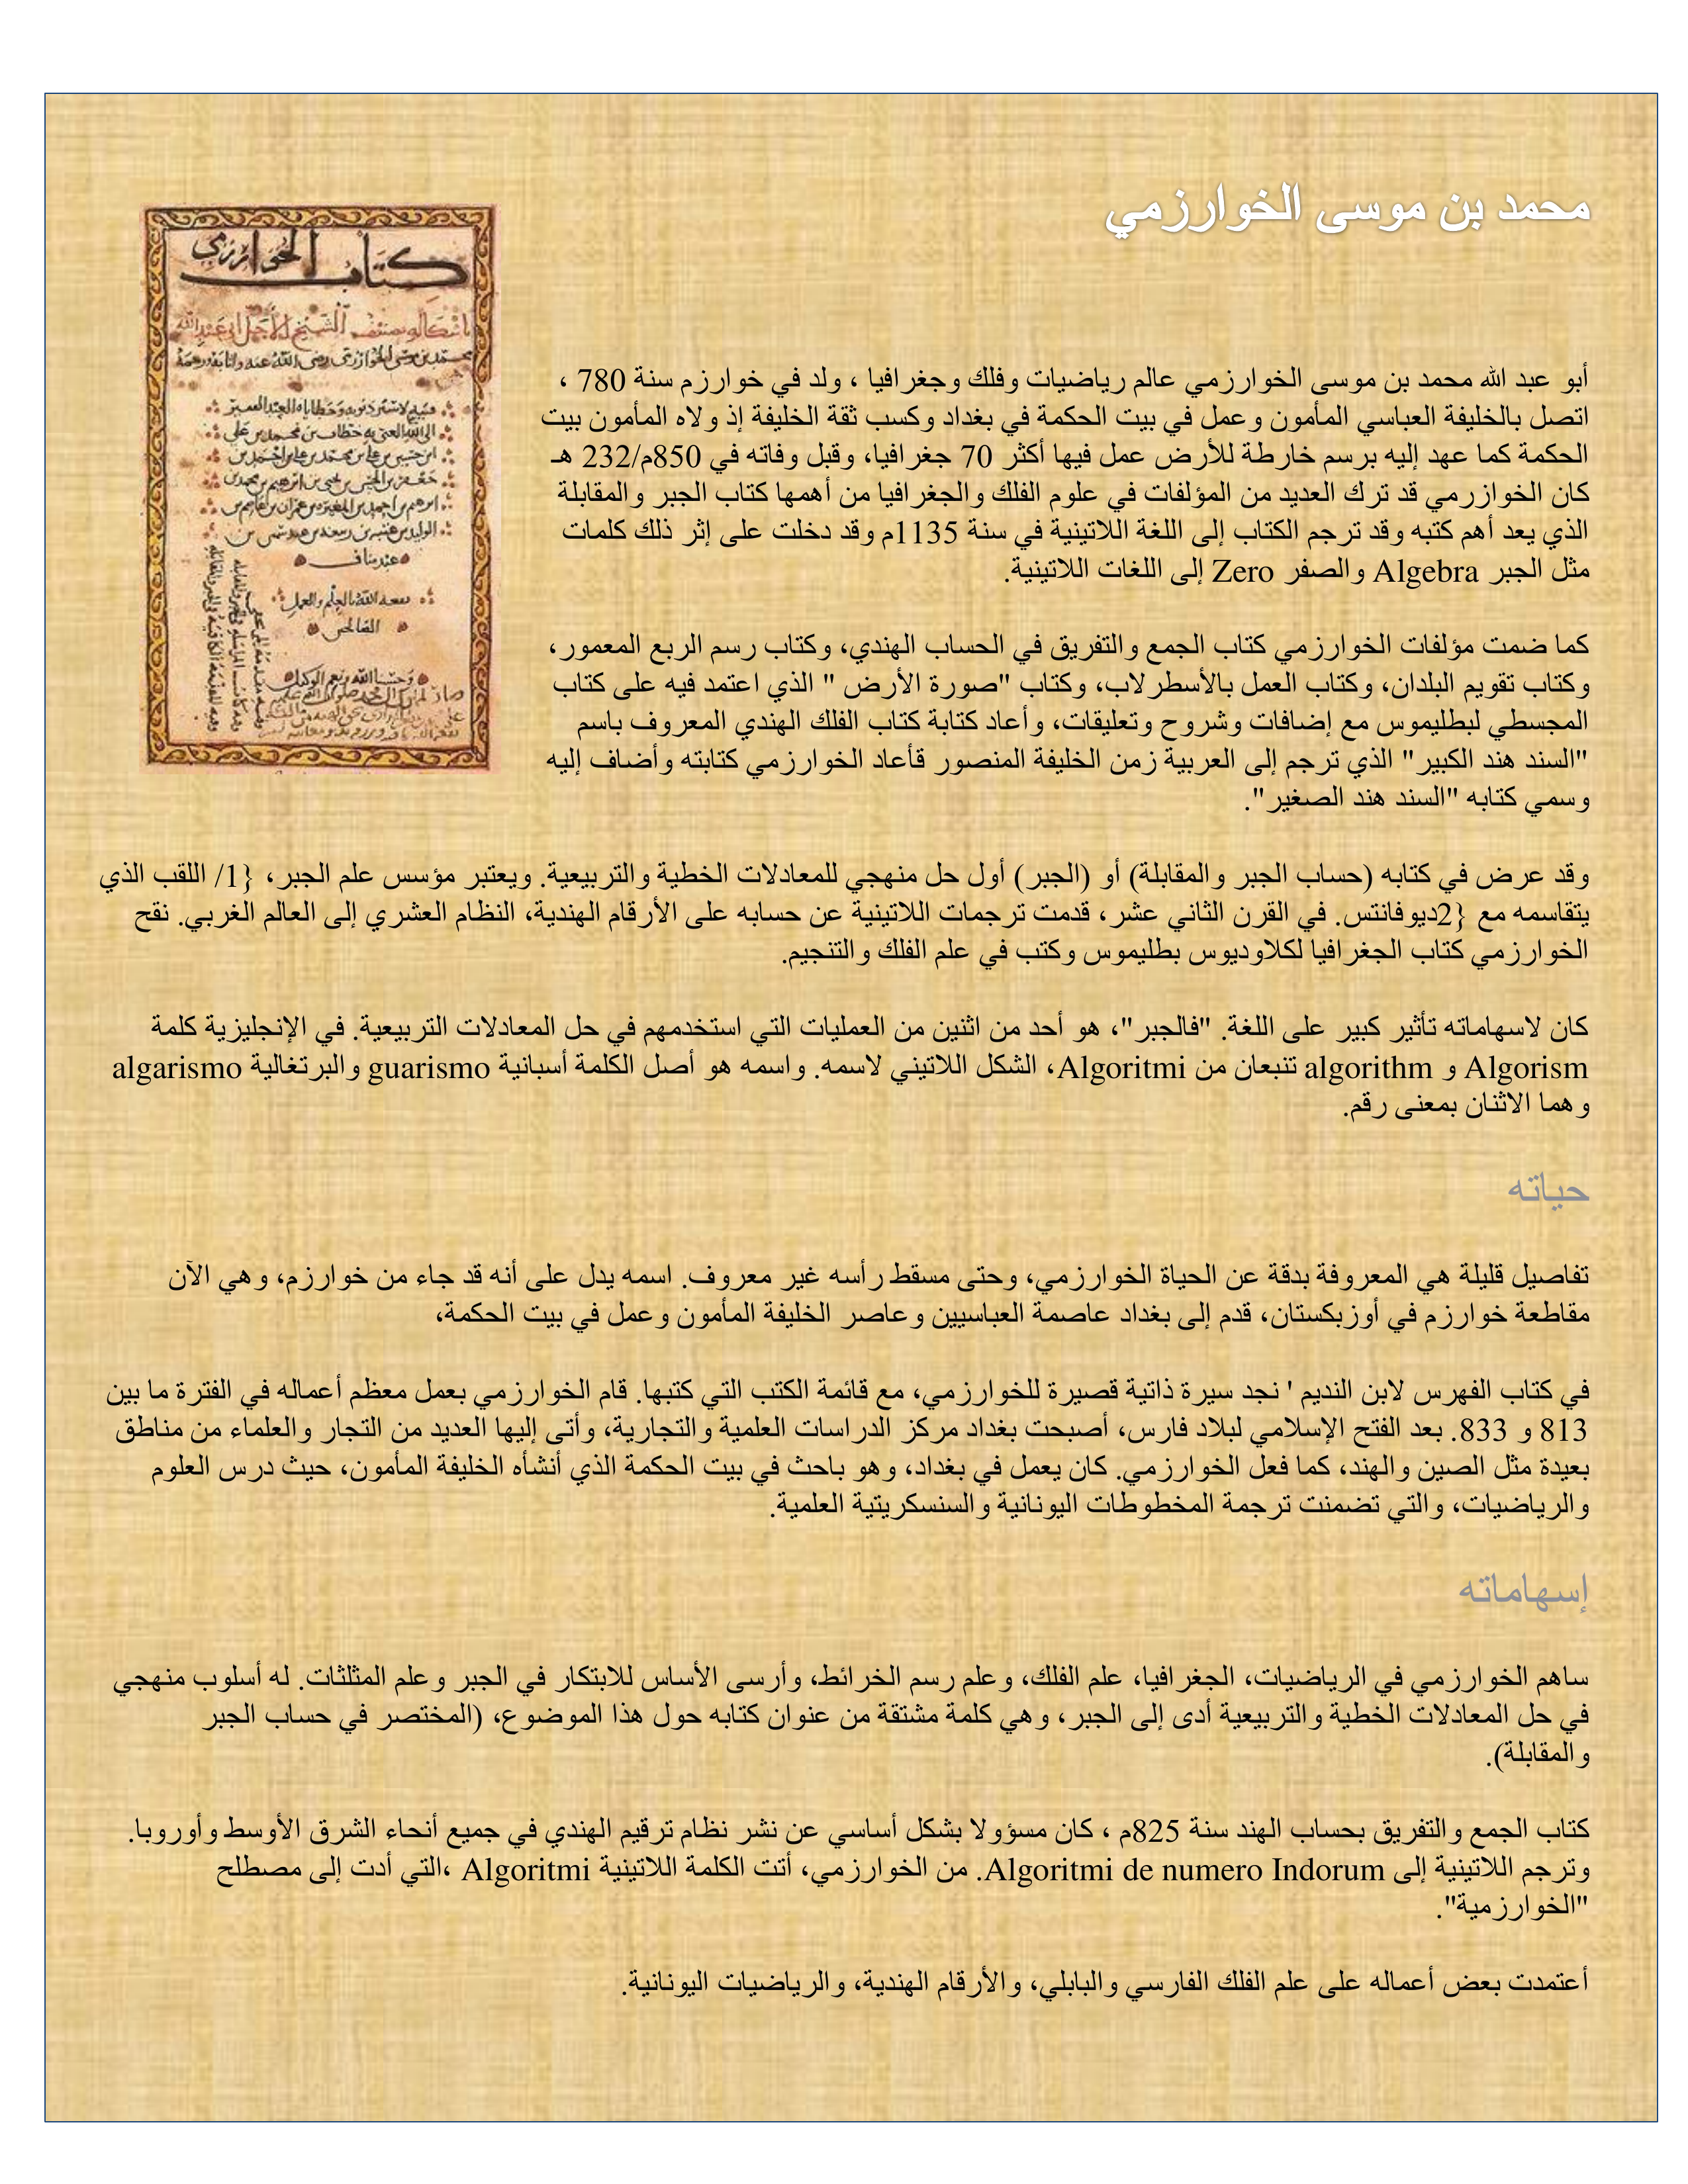 محمد بن موسى الخوارزمي
كتاب الخوارزمي
أبو عبد الله محمد بن موسى الخوارزمي عالم رياضيات وفلك وجغرافيا ، ولد في خوارزم سنة 780 ،
اتصل بالخليفة العباسي المأمون وعمل في بيت الحكمة في بغداد وكسب ثقة الخليفة إذ ولاه المأمون بيت
الحكمة كما عهد إليه برسم خارطة للأرض عمل فيها أكثر 70 جغرافيا، وقبل وفاته في 850م/232 هـ
كان الخوازرمي قد ترك العديد من المؤلفات في علوم الفلك والجغرافيا من أهمها كتاب الجبر والمقابلة
الذي يعد أهم كتبه وقد ترجم الكتاب إلى اللغة اللاتينية في سنة 1135م وقد دخلت على إثر ذلك كلمات
مثل الجبر Algebra والصفر Zero إلى اللغات اللاتينية.
كما ضمت مؤلفات الخوارزمي كتاب الجمع والتفريق في الحساب الهندي، وكتاب رسم الربع المعمور،
وكتاب تقويم البلدان، وكتاب العمل بالأسطرلاب، وكتاب "صورة الأرض " الذي اعتمد فيه على كتاب
المجسطي لبطليموس مع إضافات وشروح وتعليقات، وأعاد كتابة كتاب الفلك الهندي المعروف باسم
"السند هند الكبير" الذي ترجم إلى العربية زمن الخليفة المنصور قأعاد الخوارزمي كتابته وأضاف إليه
وسمي كتابه "السند هند الصغير".
وقد عرض في كتابه (حساب الجبر والمقابلة) أو (الجبر) أول حل منهجي للمعادلات الخطية والتربيعية. ويعتبر مؤسس علم الجبر، {1/ اللقب الذي
يتقاسمه مع {2ديوفانتس. في القرن الثاني عشر، قدمت ترجمات اللاتينية عن حسابه على الأرقام الهندية، النظام العشري إلى العالم الغربي. نقح
الخوارزمي كتاب الجغرافيا لكلاوديوس بطليموس وكتب في علم الفلك والتنجيم.
كان لاسهاماته تأثير كبير على اللغة. "فالجبر"، هو أحد من اثنين من العمليات التي استخدمهم في حل المعادلات التربيعية. في الإنجليزية كلمة
Algorism و algorithm تنبعان من Algoritmi، الشكل اللاتيني لاسمه. واسمه هو أصل الكلمة أسبانية guarismo والبرتغالية algarismo
وهما الاثنان بمعنى رقم.
حياته
تفاصيل قليلة هي المعروفة بدقة عن الحياة الخوارزمي، وحتى مسقط رأسه غير معروف. اسمه يدل على أنه قد جاء من خوارزم، وهي الآن
مقاطعة خوارزم في أوزبكستان، قدم إلى بغداد عاصمة العباسيين وعاصر الخليفة المأمون وعمل في بيت الحكمة،
في كتاب الفهرس لابن النديم ' نجد سيرة ذاتية قصيرة للخوارزمي، مع قائمة الكتب التي كتبها. قام الخوارزمي بعمل معظم أعماله في الفترة ما بين
813 و 833. بعد الفتح الإسلامي لبلاد فارس، أصبحت بغداد مركز الدراسات العلمية والتجارية، وأتى إليها العديد من التجار والعلماء من مناطق
بعيدة مثل الصين والهند، كما فعل الخوارزمي. كان يعمل في بغداد، وهو باحث في بيت الحكمة الذي أنشأه الخليفة المأمون، حيث درس العلوم
والرياضيات، والتي تضمنت ترجمة المخطوطات اليونانية والسنسكريتية العلمية.
إسهاماته
ساهم الخوارزمي في الرياضيات، الجغرافيا، علم الفلك، وعلم رسم الخرائط، وأرسى الأساس للابتكار في الجبر وعلم المثلثات. له أسلوب منهجي
في حل المعادلات الخطية والتربيعية أدى إلى الجبر، وهي كلمة مشتقة من عنوان كتابه حول هذا الموضوع، (المختصر في حساب الجبر
والمقابلة).
كتاب الجمع والتفريق بحساب الهند سنة 825م ، كان مسؤولا بشكل أساسي عن نشر نظام ترقيم الهندي في جميع أنحاء الشرق الأوسط وأوروبا.
وترجم اللاتينية إلى Algoritmi de numero Indorum. من الخوارزمي، أتت الكلمة اللاتينية Algoritmi ،التي أدت إلى مصطلح
"الخوارزمية".
أعتمدت بعض أعماله على علم الفلك الفارسي والبابلي، والأرقام الهندية، والرياضيات اليونانية.